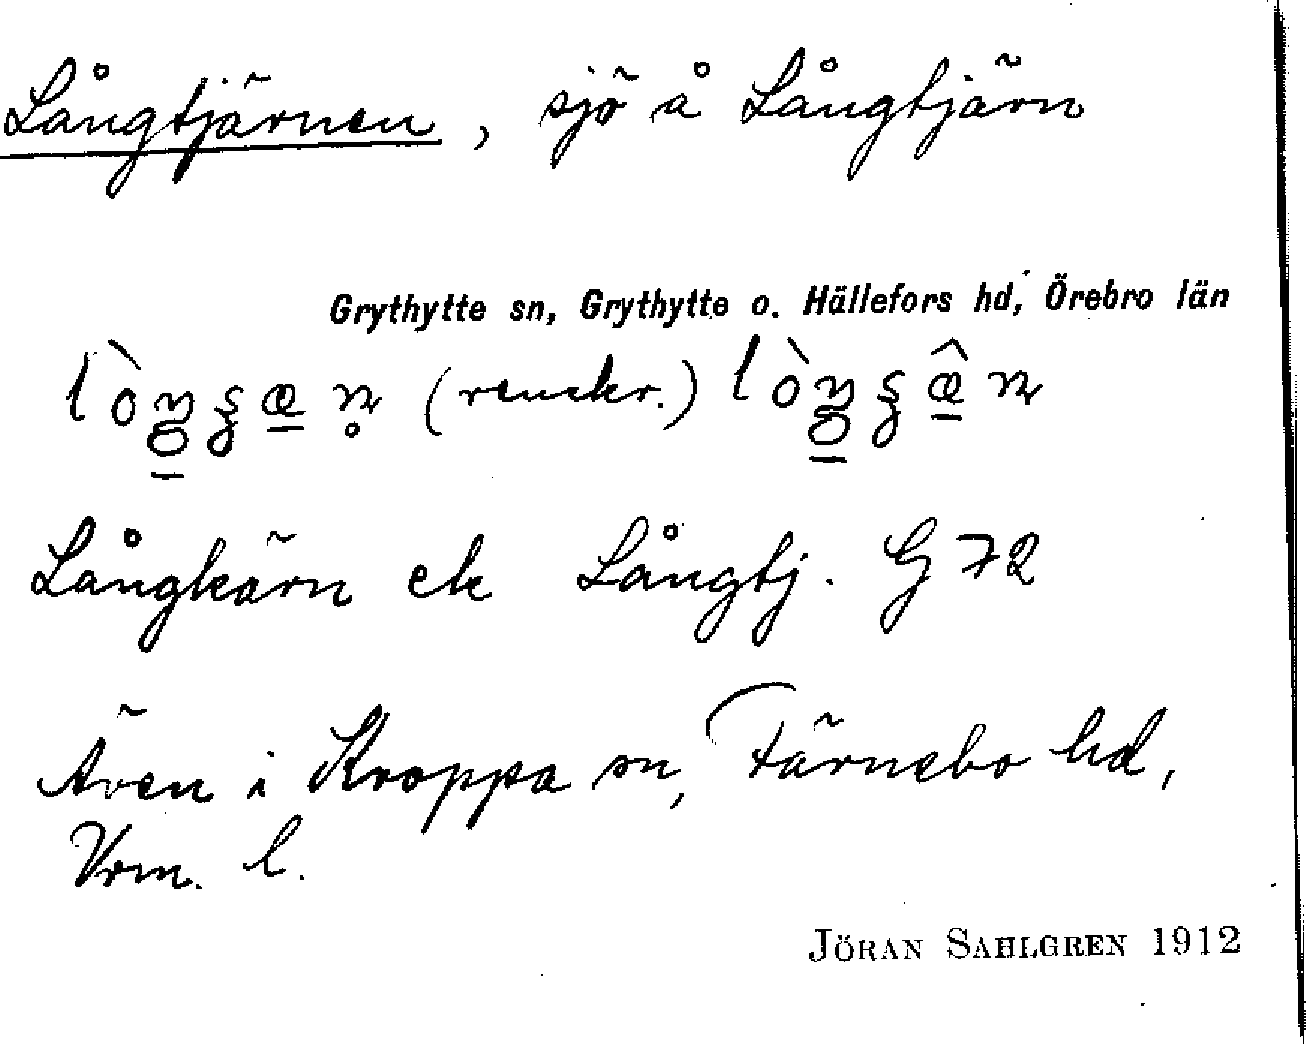 Långtjärnen, sjö å Långtjärn
Grythytte sn, Grythytte o. Hällefors hd, Örebro län
Långkärn ek Långtj. G 72
Även i Kroppa sn, Färnebo hd,
Vrm. l.
JÖRAN SAHLGREN 1912